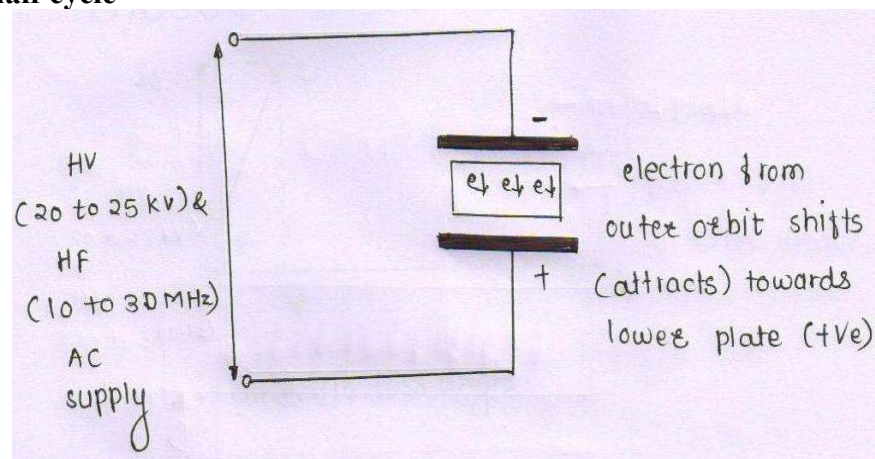 half cycle
HV
(20 to 25 kV) &
HF
(10 to 30 MHz)
AC
supply
-
e↓ e↓ e↓
+
electron from
outer orbit shifts
(attracts) towards
lower plate (+Ve)